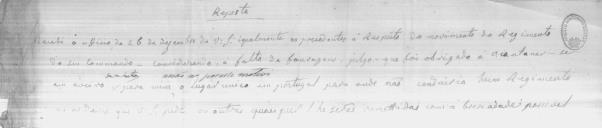 Resposta
Recebi o officio de 26 de dezembro de V. S. igualmente os precedentes á respeito do movimento do Regimento
do seu commando, considerando a falta da bagagem, julgo que foi obrigado á acantonar-se
em Aveiro, para mim, o lugar unico em portugal para onde não conduziria hum Regimento
as ordens que V. S. pede ou outras quaesquer lhe serão remettidas com a brevidade possivel